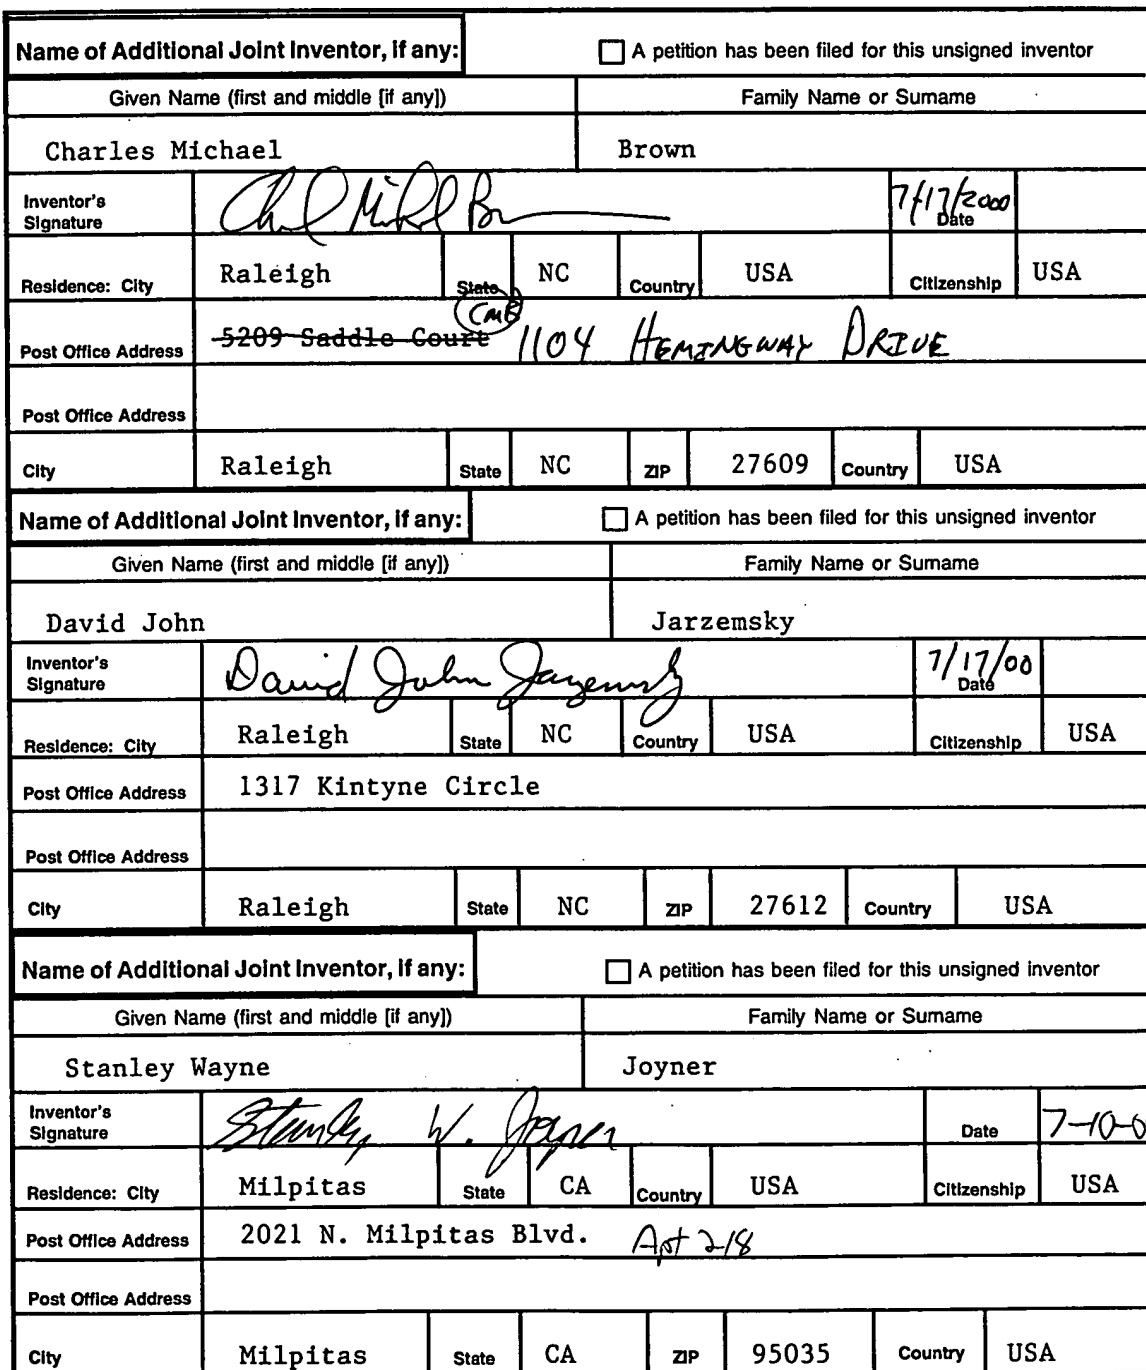 Name of Additional Joint Inventor, if any: A petition has been filed for this unsigned inventor
Given Name (first and middle [if any]) Family Name or Surname
Charles Michael Brown
Inventor's Signature 7/17/2000 Date
Residence: City Raleigh State NC Country USA Citizenship USA
Post Office Address 5209 Saddle Court CMB 1104 HEMINGWAY DRIVE
Post Office Address
City Raleigh State NC ZIP 27609 Country USA
Name of Additional Joint Inventor, if any: A petition has been filed for this unsigned inventor
Given Name (first and middle [if any]) Family Name or Surname
David John Jarzemsky
Inventor's Signature David John Jarzemsky 7/17/00 Date
Residence: City Raleigh State NC Country USA Citizenship USA
Post Office Address 1317 Kintyne Circle
Post Office Address
City Raleigh State NC ZIP 27612 Country USA
Name of Additional Joint Inventor, if any: A petition has been filed for this unsigned inventor
Given Name (first and middle [if any]) Family Name or Surname
Stanley Wayne Joyner
Inventor's Signature Stanley W. Joyner Date 7-10-0
Residence: City Milpitas State CA Country USA Citizenship USA
Post Office Address 2021 N. Milpitas Blvd. Apt 218
Post Office Address
City Milpitas State CA ZIP 95035 Country USA